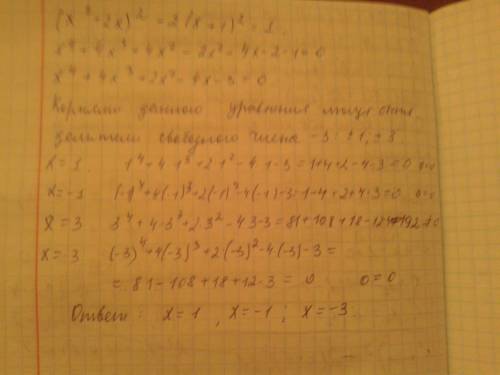 (x²+2x)² = 2(x+1)² = 1
x⁴+4x³+4x²-2x²-4x-2-1=0
x⁴+4x³+2x²-4x-3=0
Корнями данного уравнения могут быть
делители свободного члена -3: ±1, ±3
x=1 1⁴+4·1³+2·1²-4·1-3=1+4+2-4-3=0 0=0
x=-1 (-1)⁴+4(-1)³+2(-1)²-4(-1)-3=1-4+2+4-3=0 0=0
x=3 3⁴+4·3³+2·3²-4·3-3=81+108+18-12-3=192≠0
x=-3 (-3)⁴+4(-3)³+2(-3)²-4(-3)-3=
= 81-108+18+12-3= 0 0=0
Ответ: x=1, x=-1; x=-3